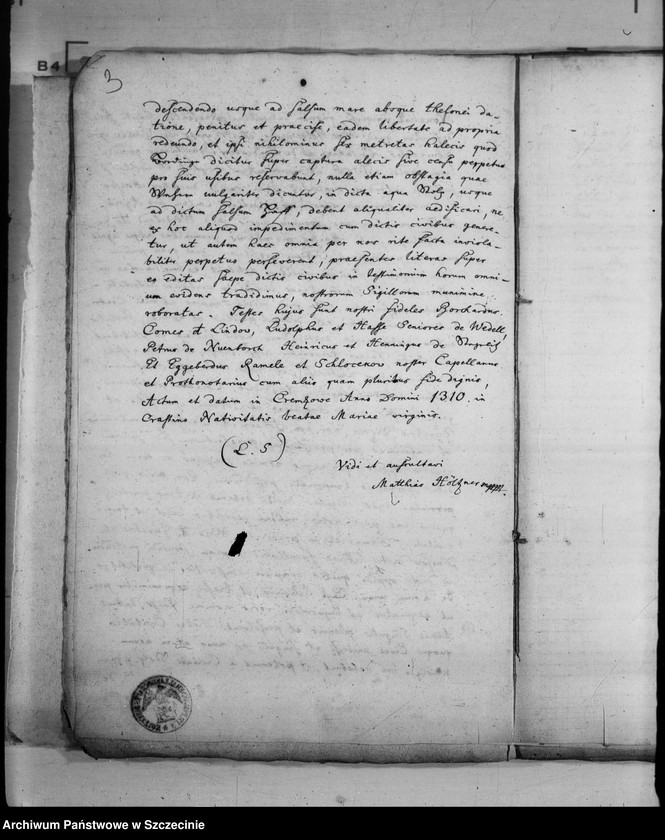 B4
3
descendendo usque ad salsum mare absque thelonei da-
tione, penitus et praecise, eadem libertate ad propria
redeundo, et ipsi nihilominus sex metretas halecis quod
Vordinge dicitur super captura alecis sive censu perpetuo
pro suis usibus reservabunt, nulla etiam obstagia quae
vulgariter dicuntur, in dicta aqua Stolp, usque
ad dictum salsum Haff, debent aliqualiter aedificari, ne
ex hoc aliquod impedimentum cum dictis civibus genere-
tur, ut autem haec omnia per nos rite facta inviola-
biliter perpetuo perseverent, praesentes literas super
eo editas saepe dictis civibus in testimonium horum omni-
um evidens tradidimus, nostrorum Sigillorum munimine
roboratas. Testes hujus sunt nostri fideles Borchardus
Comes de Lindow, Ludolphus et Hasso Seniores de Wedell,
Petrus de Nuenborch Heinricus et Henningus de
Et Eggeberdus Ramele et Schlocekow noster Capellanus
et Prothonotarius cum aliis quam pluribus fide dignis,
Actum et datum in Cremzowe Anno Domini 1310. in
Crastino Nativitatis beatae Mariae virginis.
(L. S)
Vidi et auscultavi
Matthias Höltzner mppr.
Archiwum Państwowe w Szczecinie